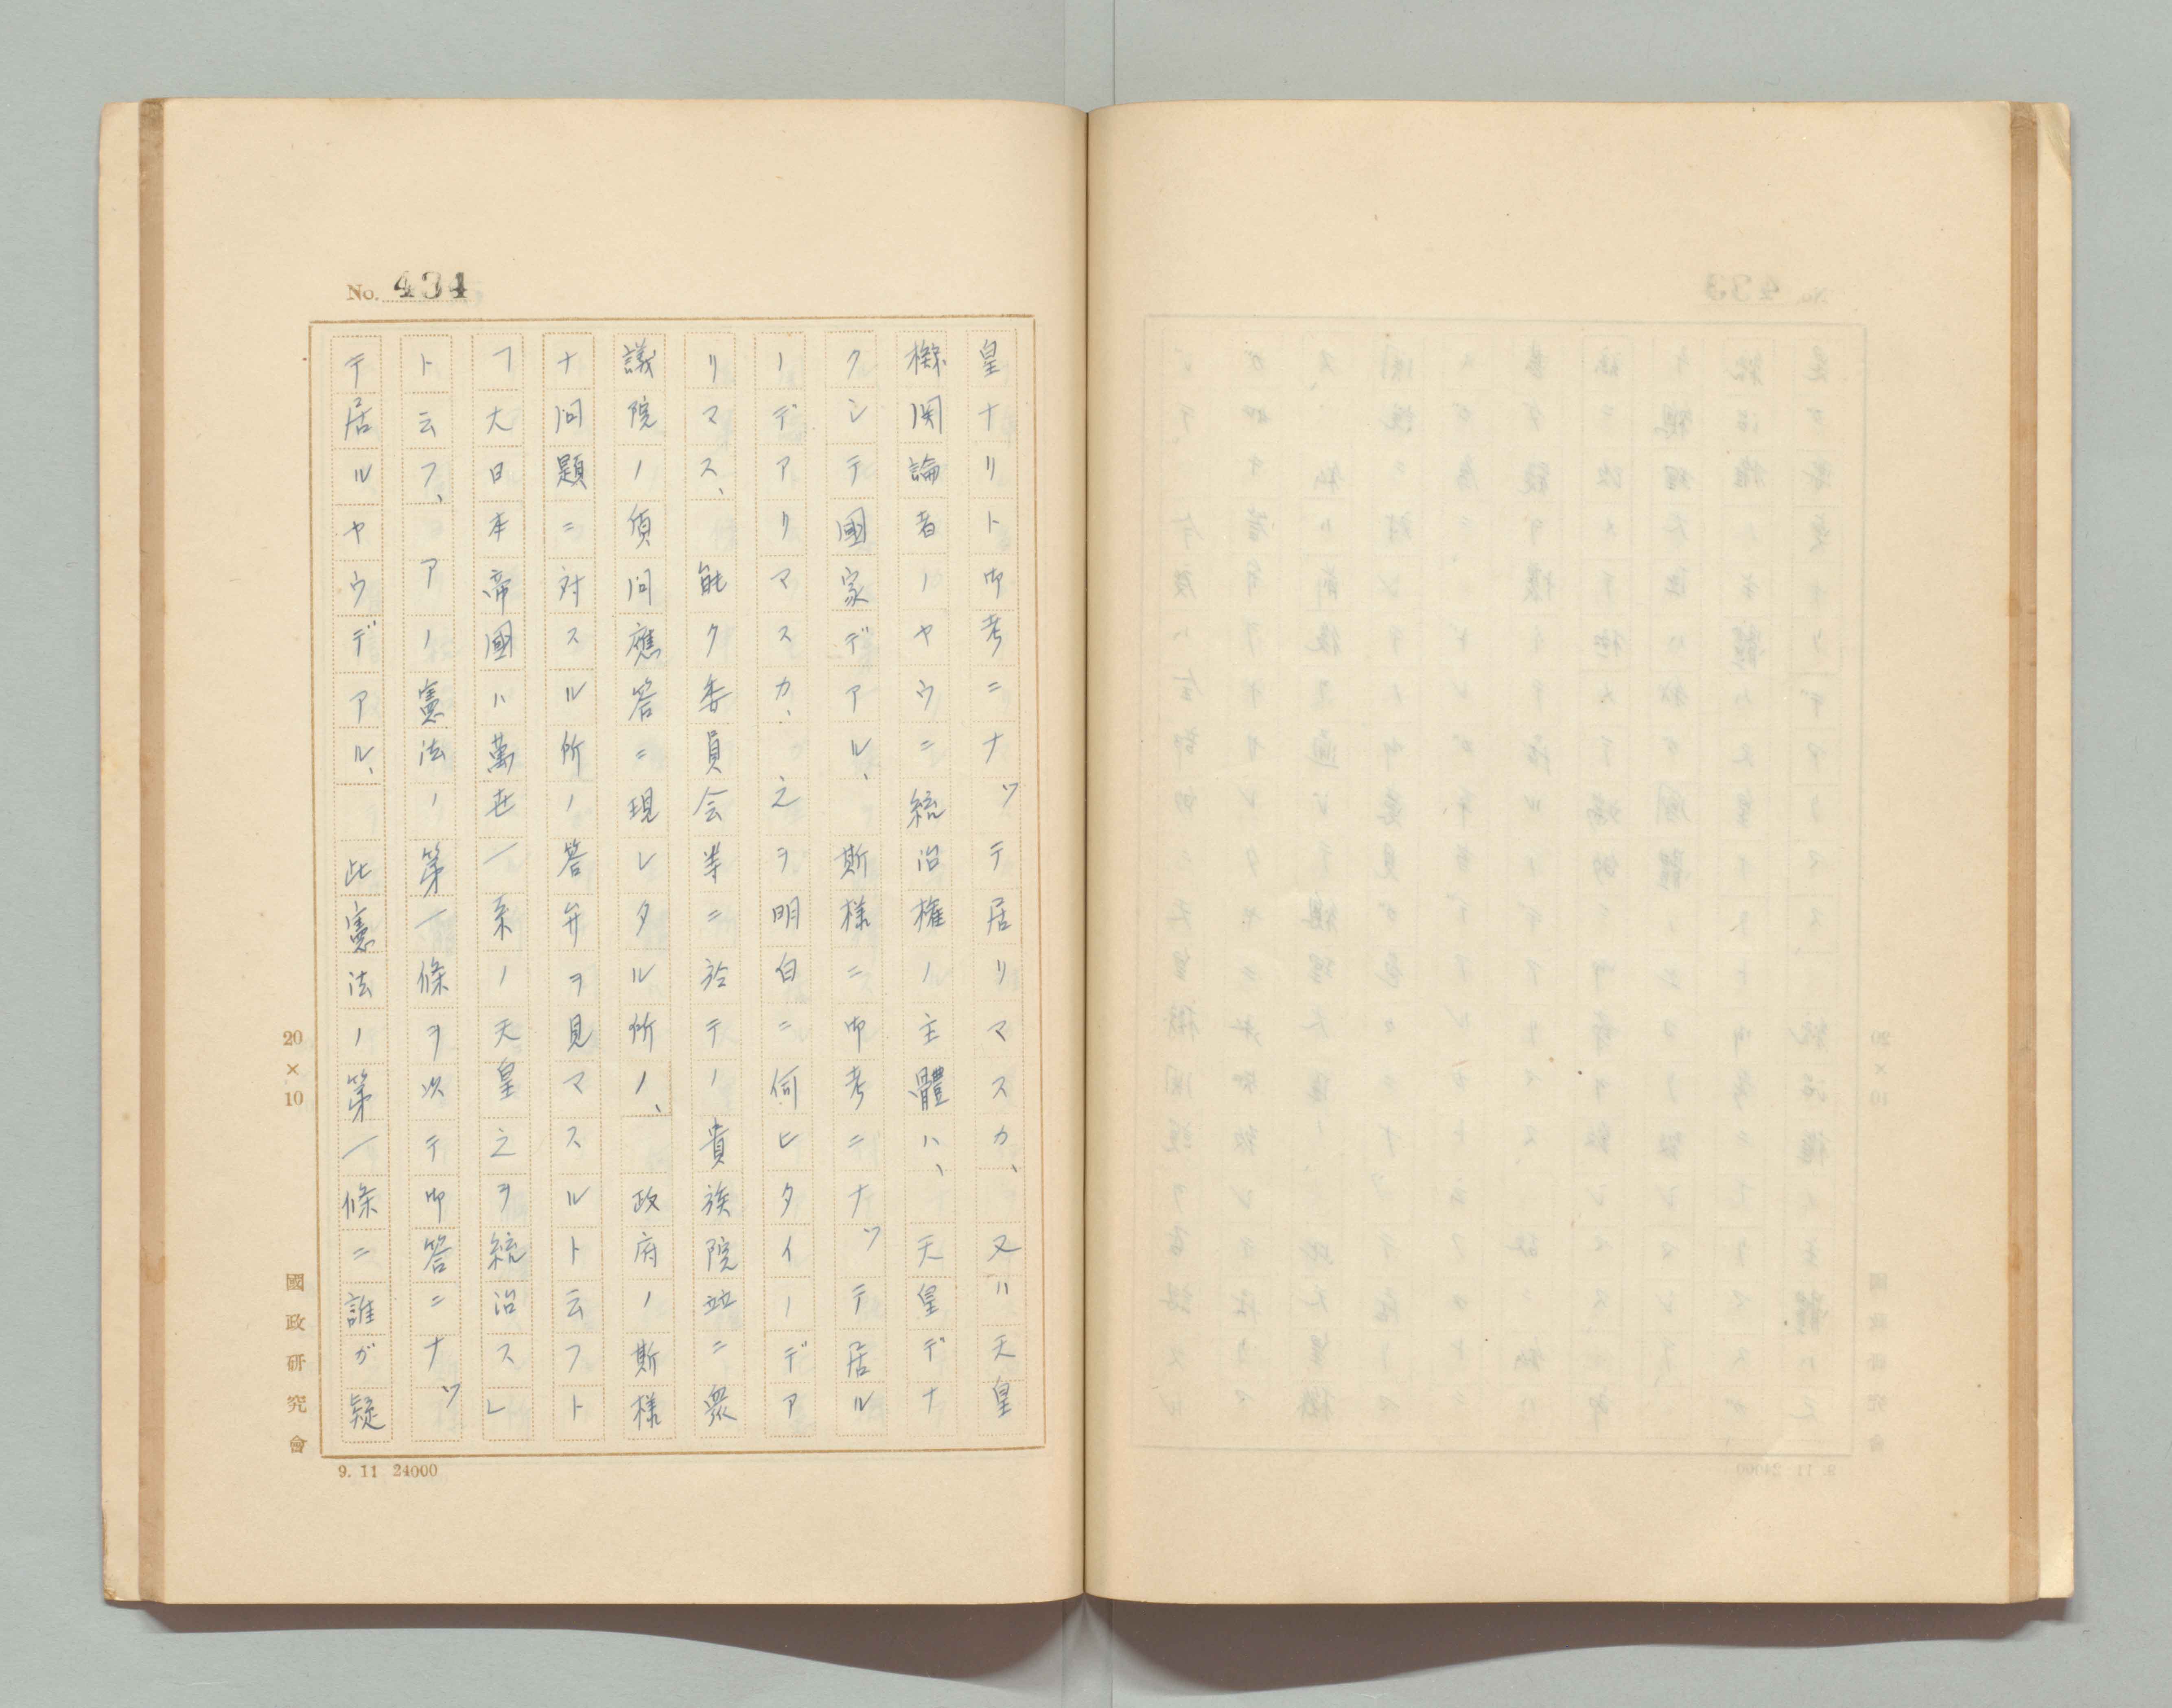 No. 434
皇ナリト御考ニナッテ居リマスカ、又ハ天皇
機関論者ノヤウニ統治権ノ主體ハ、天皇デナ
クシテ國家デアル、斯様ニ御考ニナッテ居ル
ノデアリマスカ、之ヲ明白ニ伺ヒタイノデア
リマス、能ク委員会等ニ於テノ貴族院竝ニ衆
議院ノ質問應答ニ現レタル所ノ、政府ノ斯様
ナ問題ニ対スル所ノ答弁ヲ見マスルト云フト
「大日本帝國ハ萬世一系ノ天皇之ヲ統治ス」
ト云フ、アノ憲法ノ第一條ヲ以テ御答ニナッ
テ居ルヤウデアル、此憲法ノ第一條ニ誰ガ疑
20×10
國政研究會
9. 11 24000